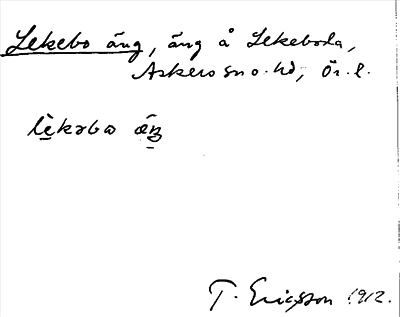 Lekebo äng, äng å Lekeboda,
Askers sn o. hd, Ör. l.
lèkəbω ǽŋ
T. Ericsson 1912.